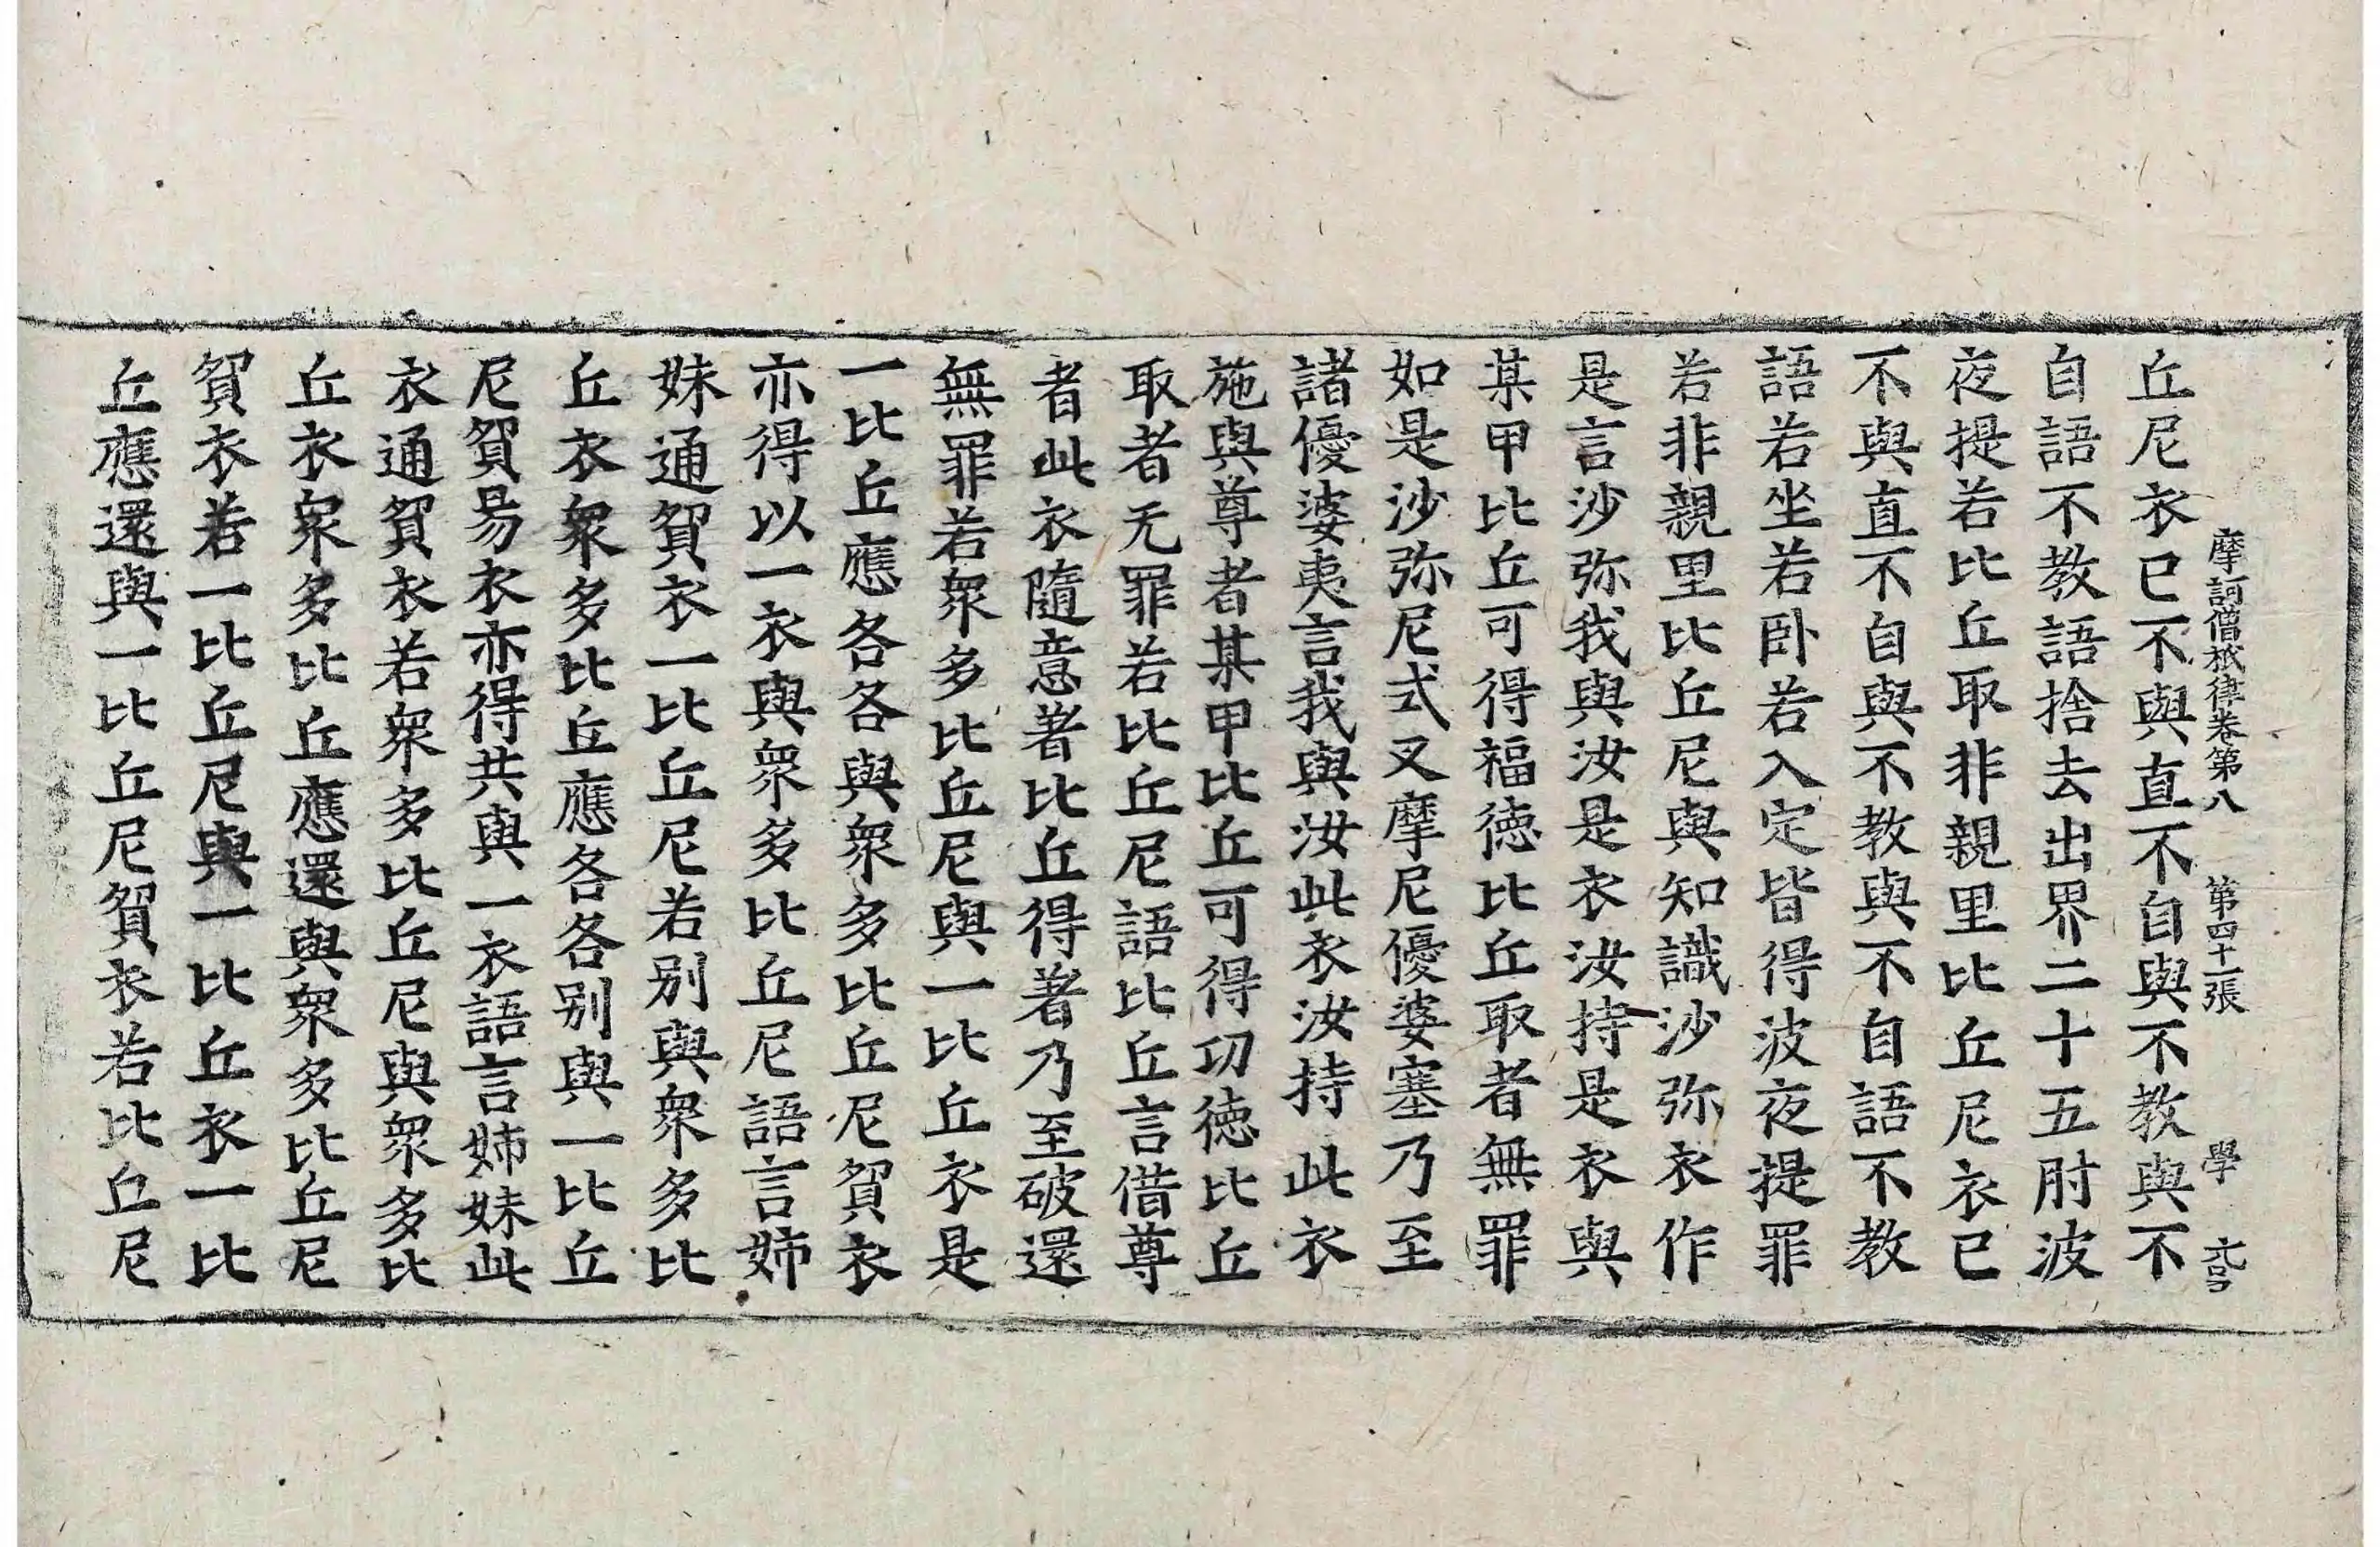 摩訶僧祇律卷第八　第四十一張　學
丘尼衣已不與直不自與不教與不
自語不教語捨去出界二十五肘波
夜提若比丘取非親里比丘尼衣已
不與直不自與不教與不自語不教
語若坐若卧若入定皆得波夜提罪
若非親里比丘尼與知識沙弥衣作
是言沙弥我與汝是衣汝持是衣與
某甲比丘可得福德比丘取者無罪
如是沙弥尼式叉摩尼優婆塞乃至
諸優婆夷言我與汝此衣汝持此衣
施與尊者某甲比丘可得功德比丘
取者无罪若比丘尼語比丘言借尊
者此衣隨意著比丘得著乃至破還
無罪若衆多比丘尼與一比丘衣是
一比丘應各各與衆多比丘尼貿衣
亦得以一衣與衆多比丘尼語言姉
妹通貿衣一比丘尼若别與衆多比
丘衣衆多比丘應各各别與一比丘
尼貿易衣亦得共與一衣語言姉妹此
衣通貿衣若衆多比丘尼與衆多比
丘衣衆多比丘應還與衆多比丘尼
貿衣若一比丘尼與一比丘衣一比
丘應還與一比丘尼貿衣若比丘尼